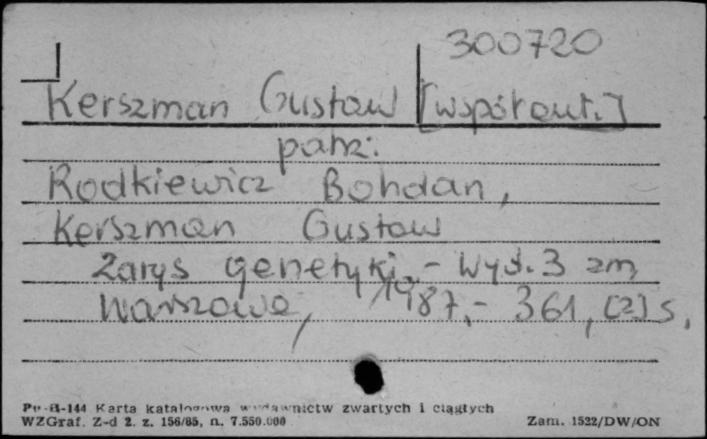 300720
Kerszman Gustaw [współaut.]
patrz:
Rodkiewicz Bohdan,
Kerszman Gustaw
Zarys genetyki. - Wyd. 3 zm,
Warszawa, 1987. - 361, [2] s.
Pu-B-144 Karta katalogowa wydawnictw zwartych i ciągłych
WZGraf. Z-d 2. z. 156/85, n. 7.550.000 Zam. 1522/DW/ON